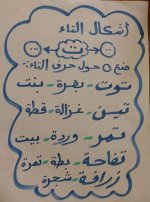 أشكال التاء
ت
ضع O حول حرف التاء:
توت - بقرة - بنت
تين - غزالة - قطة
تمر - وردة - بيت
تفاحة - بطة - تمرة
زرافة - شجرة